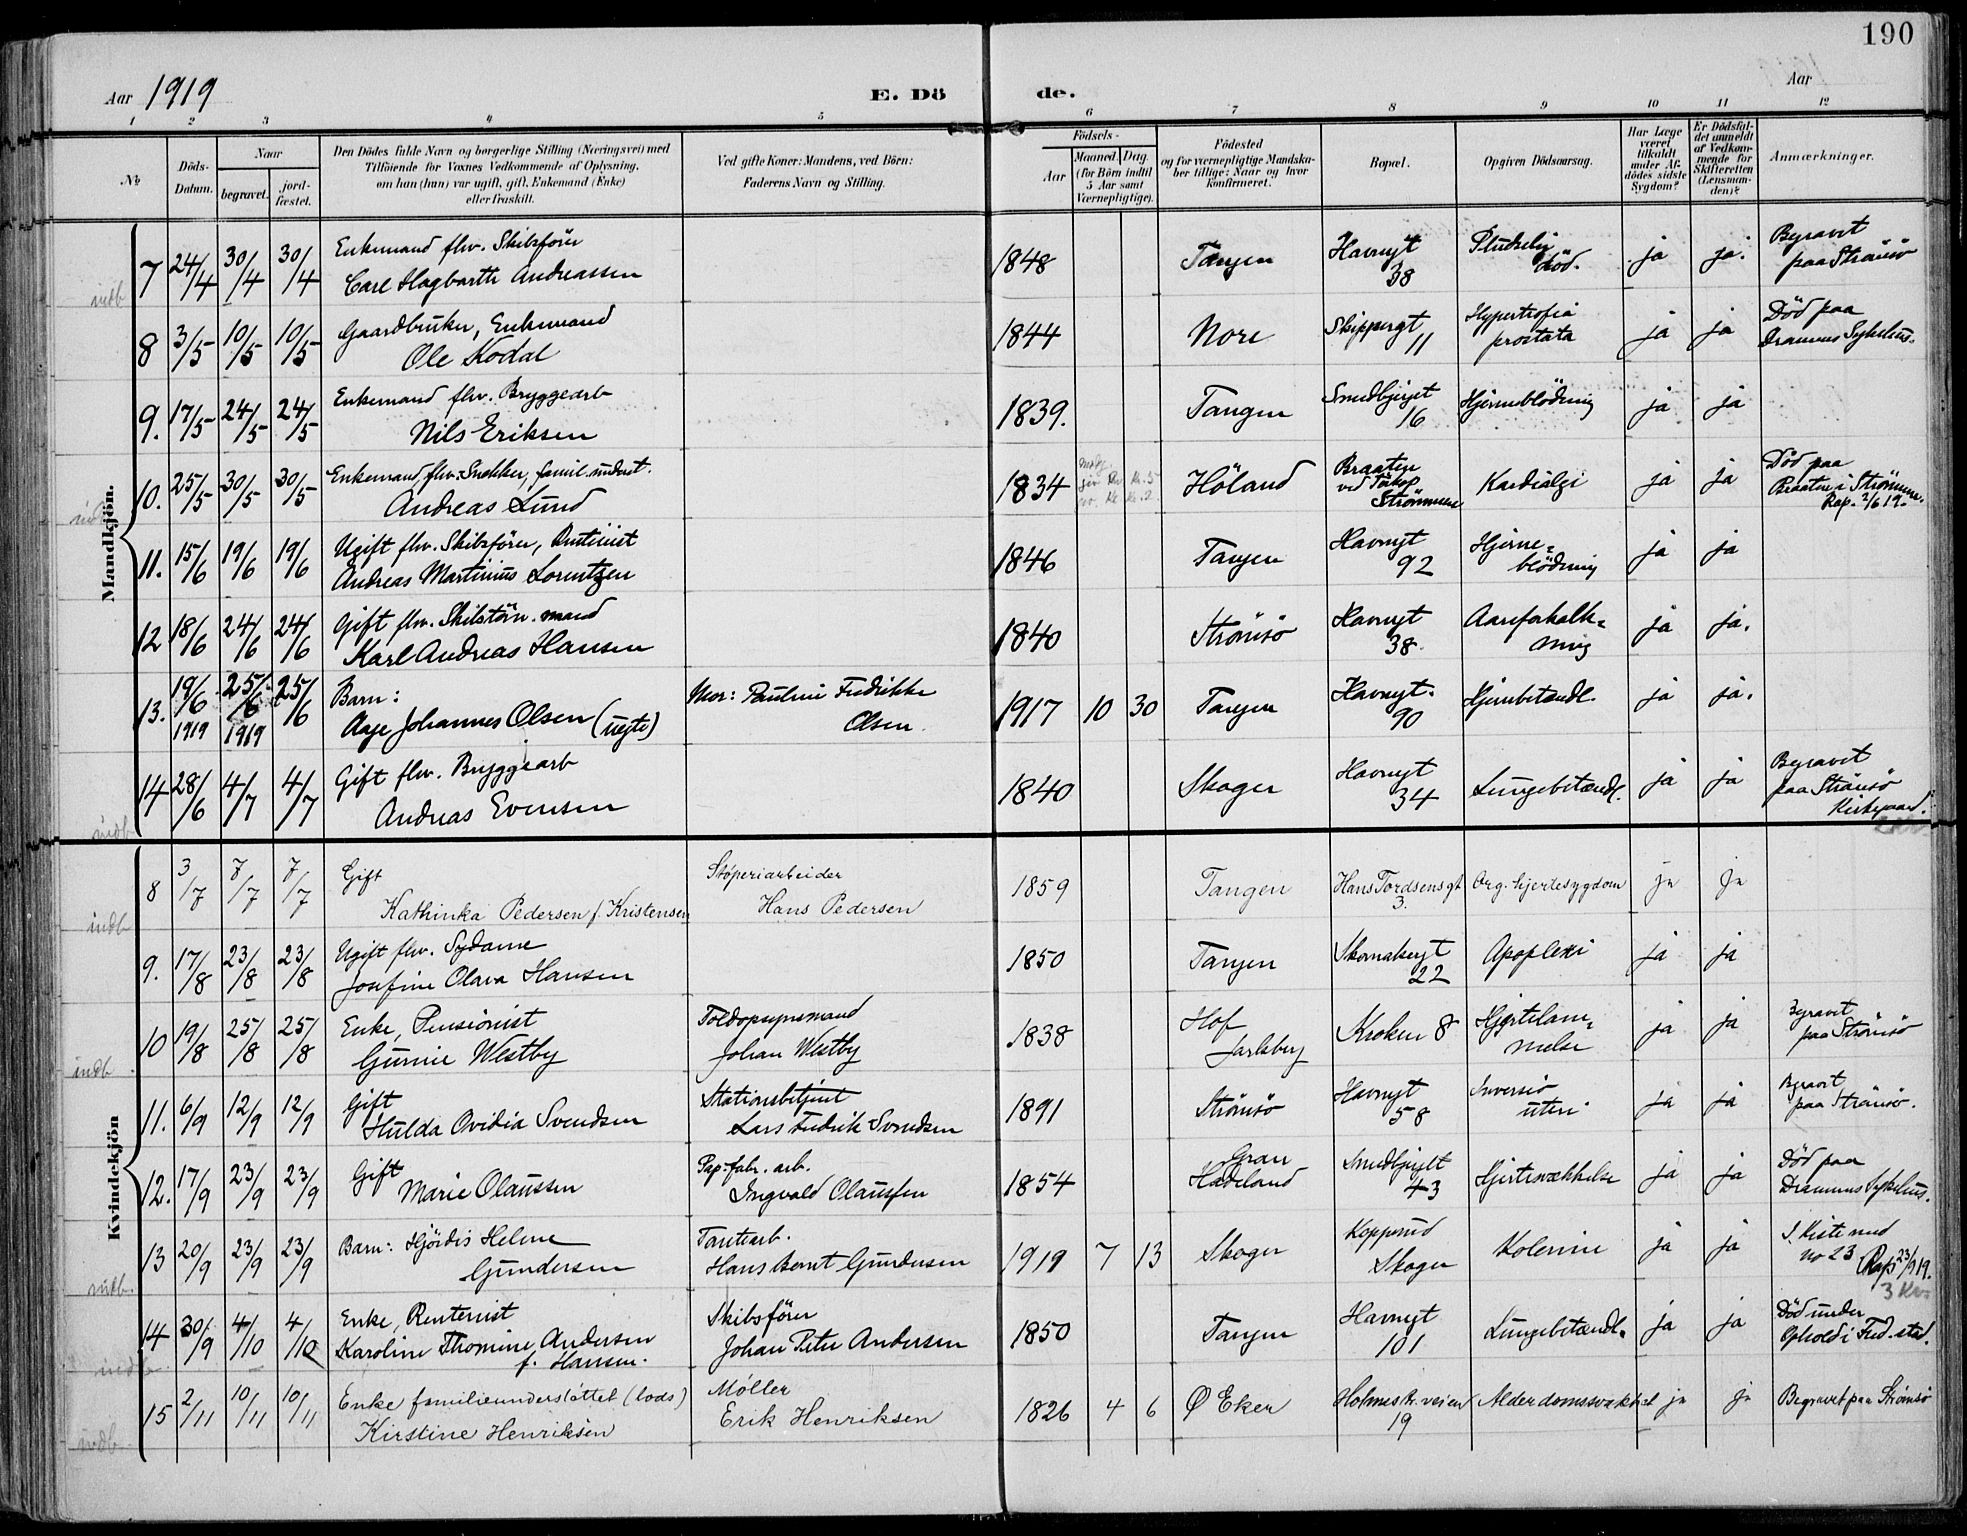 190
Aar 1919
E. Dö
de.
Aar
1 2 3 4 5 6 7 8 9 10 11 12
No
Döds-
Datum.
Naar
begravet.
jord-
fæstet.
Den Dödes fulde Navn og borgerlige Stilling (Næringsvei) med
Tilföiende for Voxnes Vedkommende af Oplysning,
om han (hun) var ugift, gift, Enkemand (Enke)
eller fraskilt.
Ved gifte Koner: Mandens, ved Börn:
Faderens Navn og Stilling.
Födsels-
Aar
Maaned. Dag.
(for Börn indtil
5 Aar samt
Værnepligtige).
Födested
og for værnepligtige Mandska-
ber tillige: Naar og hvor
konfirmeret.
Bopæl.
Opgiven Dödsaarsag.
Har Læge
været
tilkaldt
under Af-
dödes sidste
Sygdom?
Er Dödsfal-
det anmeldt
af Vedkom-
mende for
Skifteretten
(Lensman-
den)?
Anmærkninger.
Mandkjön.
7 24/4 30/4 30/4 Enkemand flv. Skibsförer
Carl Hagbarth Andreassen
1848 Tangen Havnegt 38 Pludselig död. ja ja. Begravet
paa Strömsö
indb
8 3/5 10/5 10/5 Gaardbruker, Enkemand
Ole Kodal
1844 Nore Skippergt 11 Hypertrofia prostata ja ja Död paa
Drammens Sykehus.
9. 17/5 24/5 24/5 Enkemand flv. Bryggearb
Nils Eriksen
1839. Tangen Smedbjerget 16 Hjerneblödning ja ja
10. 25/5 30/5 30/5 Enkemand, flv. Snekker, famil. underst.
Andreas Lund
1834 Höland Braaten
ved
Strömmen Kardialgi ja ja Död paa
Braaten i Strömmen.
Rap. 2/6 19.
11. 15/6 19/6 19/6 Ugift flv. Skibsförer, Rentenist
Andreas Martinius Lorentzen
1846 Tangen Havnegt 92 Hjerne=
blödning ja ja
12 18/6 24/6 24/6 Gift flv. mand
Karl Andreas Hansen
1840 Strömsö Havnegt 38. Aareforkalk=
ning ja ja.
13. 19/6 1919 25/6 1919 25/6 Barn:
Aage Johannes Olsen (uegte)
Mor: Pauline Fredrikke
Olsen.
1917 10 30 Tangen Havnegt. 90 Hjernbetændl. ja ja.
14 28/6 4/7 4/7 Gift flv. Bryggearb
Andreas Evensen
1840 Skoger Havnegt 34 Lungebetændl. ja ja Begravet
paa Strömsö
Kirkegaard.
indb
Kvindekjön
8 3/7 7/7 7/7 Gift
Kathinka Pedersen f. Kristensen
Støperiarbeider
Hans Pedersen
1859 Tangen Hans Tordsensgt 3. Org. hjertesygdom ja ja
indb
9. 17/8 23/8 23/8 Ugift flv. Sydame
Josefine Olava Hansen
1850 Tangen Skomakergt 22 Apoplexi ja ja
10 19/8 25/8 25/8 Enke, Pensionist
Gunnie Westby
Toldopsynsmand
Johan Westby
1838 Hof
Jarlsberg Kroken 8 Hjertelam=
melse ja ja Begravet
paa Strömsö
indb
11. 6/9 12/9 12/9 Gift
Hulda Ovidia Svendsen
Stationsbetjent
Lars Fredrik Svendsen
1891 Strömsö Havnegt 58 Inversio uteri ja ja Begravet
paa Strömsö.
12. 17/9 23/9 23/9 Gift
Marie Olaussen
Pap-fabr. arb.
Ingvald Olaussen
1854 Gran
Hadeland Smedbjerget 43 Hjertesvækkelse ja ja Död paa
Drammens Sykehus.
13 20/9 23/9 23/9 Barn: Hjördis Helene
Gundersen
Tomtearb.
Hans Bernt Gundersen
1919 7 13 Skoger Kopperud
Skoger Kolerine ja ja I. Kiste med
no 23 (Rap. 23/9 19.
3 Kv.
indb.
14 30/9 4/10 4/10 Enke, Rentenist
Karoline Thomine Andersen
f. Hansen.
Skibsförer
Johan Peter Andersen
1850 Tangen Havnegt 101 Lungebetændl. ja ja Död under
Ophold i Fred.stad.
indb
15 2/11 10/11 10/11 Enke familieunderstöttet (lods)
Kirstine Henriksen
Møller
Erik Henriksen
1826 4 6 Ø Eker Holmestr. veien 19 Alderdomssvakhet ja ja Begravet paa Strømsø
indb